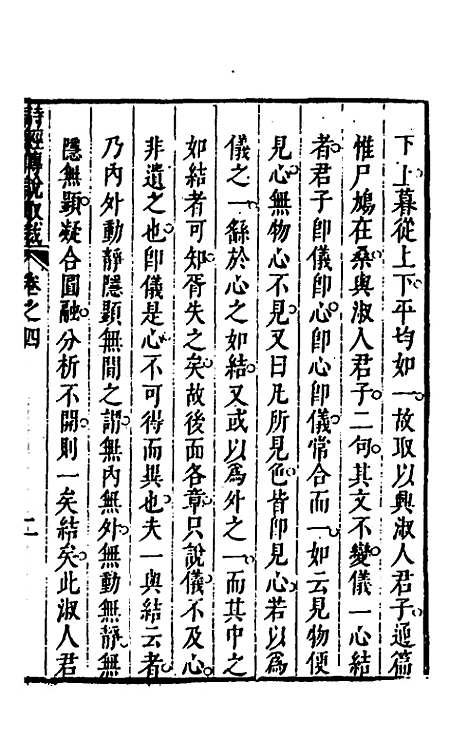 下上暮從上下平均如一故取以興淑人君子通篇
惟尸鳩在桑與淑人君子二句其文不變儀一心結
者君子即儀即心即心即儀常合而一如云見物便
見心無物心不見又曰凡所見色皆即見心若以為
儀之一繇於心之如結又或以為外之一而其中之
如結者可知胥失之矣故後面各章只說儀不及心
非遺之也即儀是心不可得而異也夫一與結云者
乃內外動靜隱顯無間之謂無內無外無動無靜無
隱無顯凝合圓融分析不開則一矣結矣此淑人君
詩經傳說取裁 卷之四 二